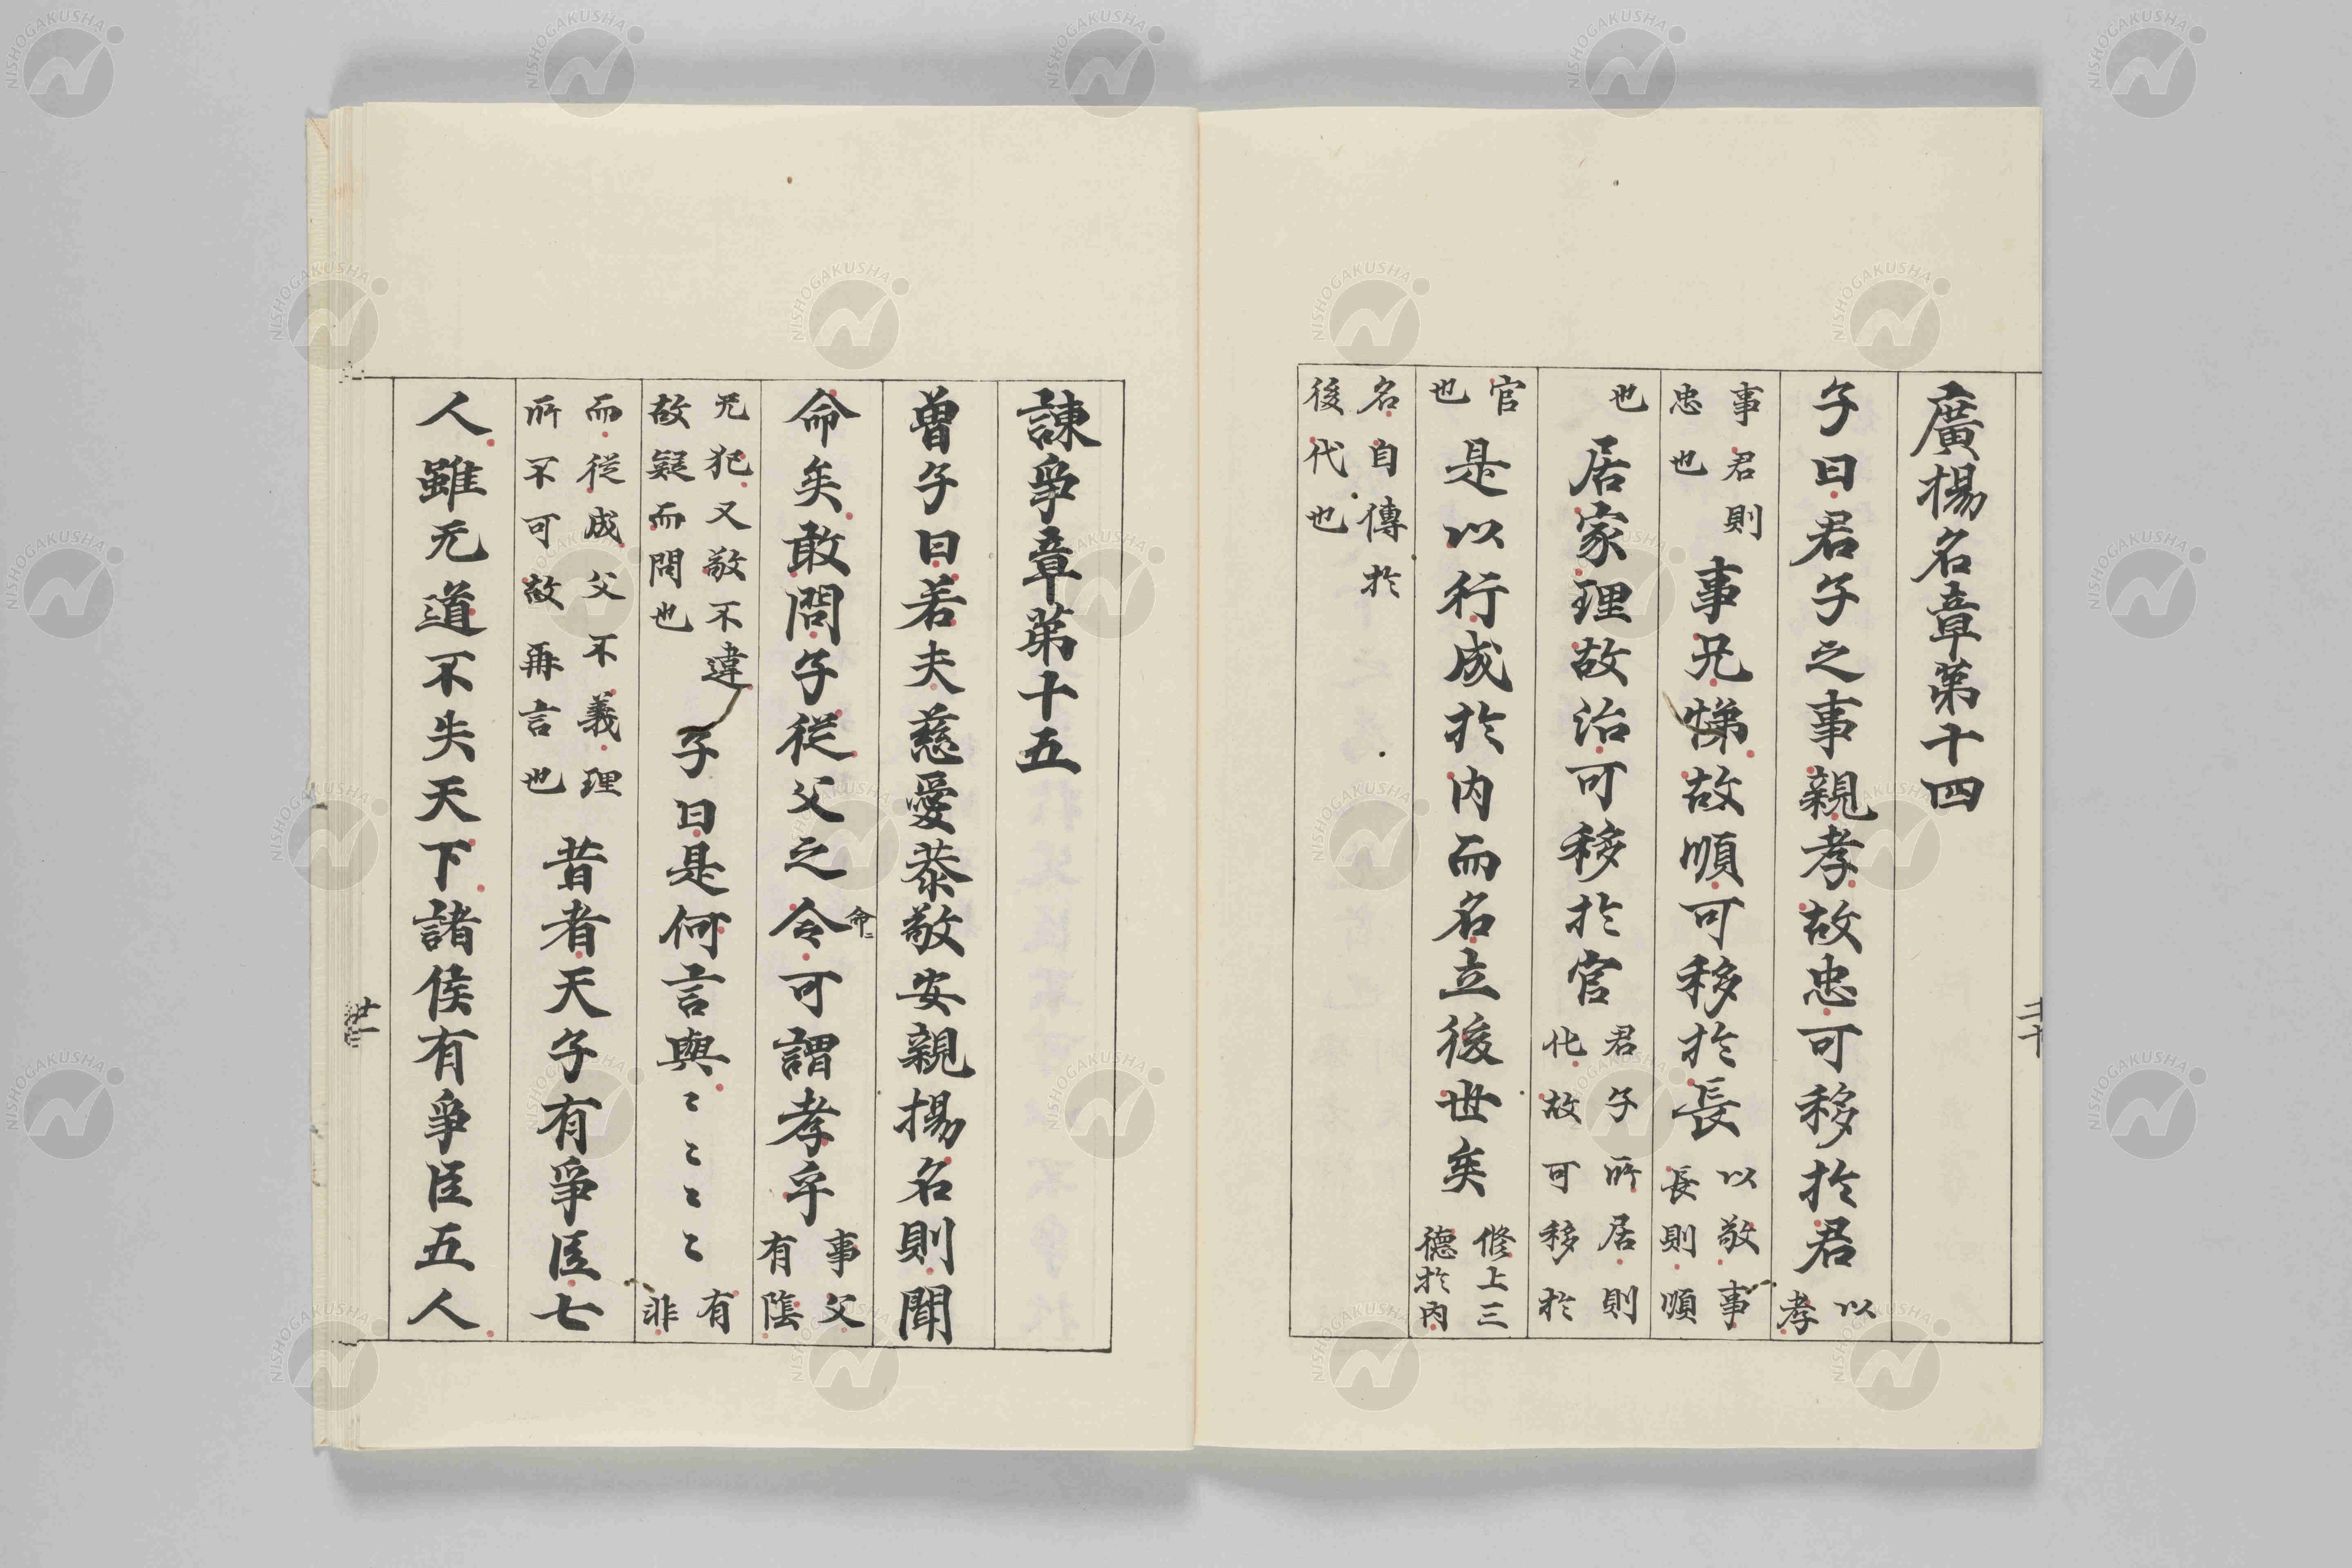 廣揚名章第十四
子曰君子之事親孝故忠可移於君以孝
事君則忠也事兄悌故順可移於長以敬事長則順
也居家理故治可移於官君子所居則化故可移於
官也是以行成於内而名立後世矣修上三德於内
名自傳於後代也
諌爭章第十五
曽子曰若夫慈愛恭敬安親揚名則聞
命矣敢問子從父之令可謂孝乎事父有隂
命
无犯又敬不違故疑而問也子曰是何言與〻〻〻〻有非
而從成父不義理所不可故再言也昔者天子有爭臣七
人雖无道不失天下諸侯有爭臣五人
NISHOGAKUSHA